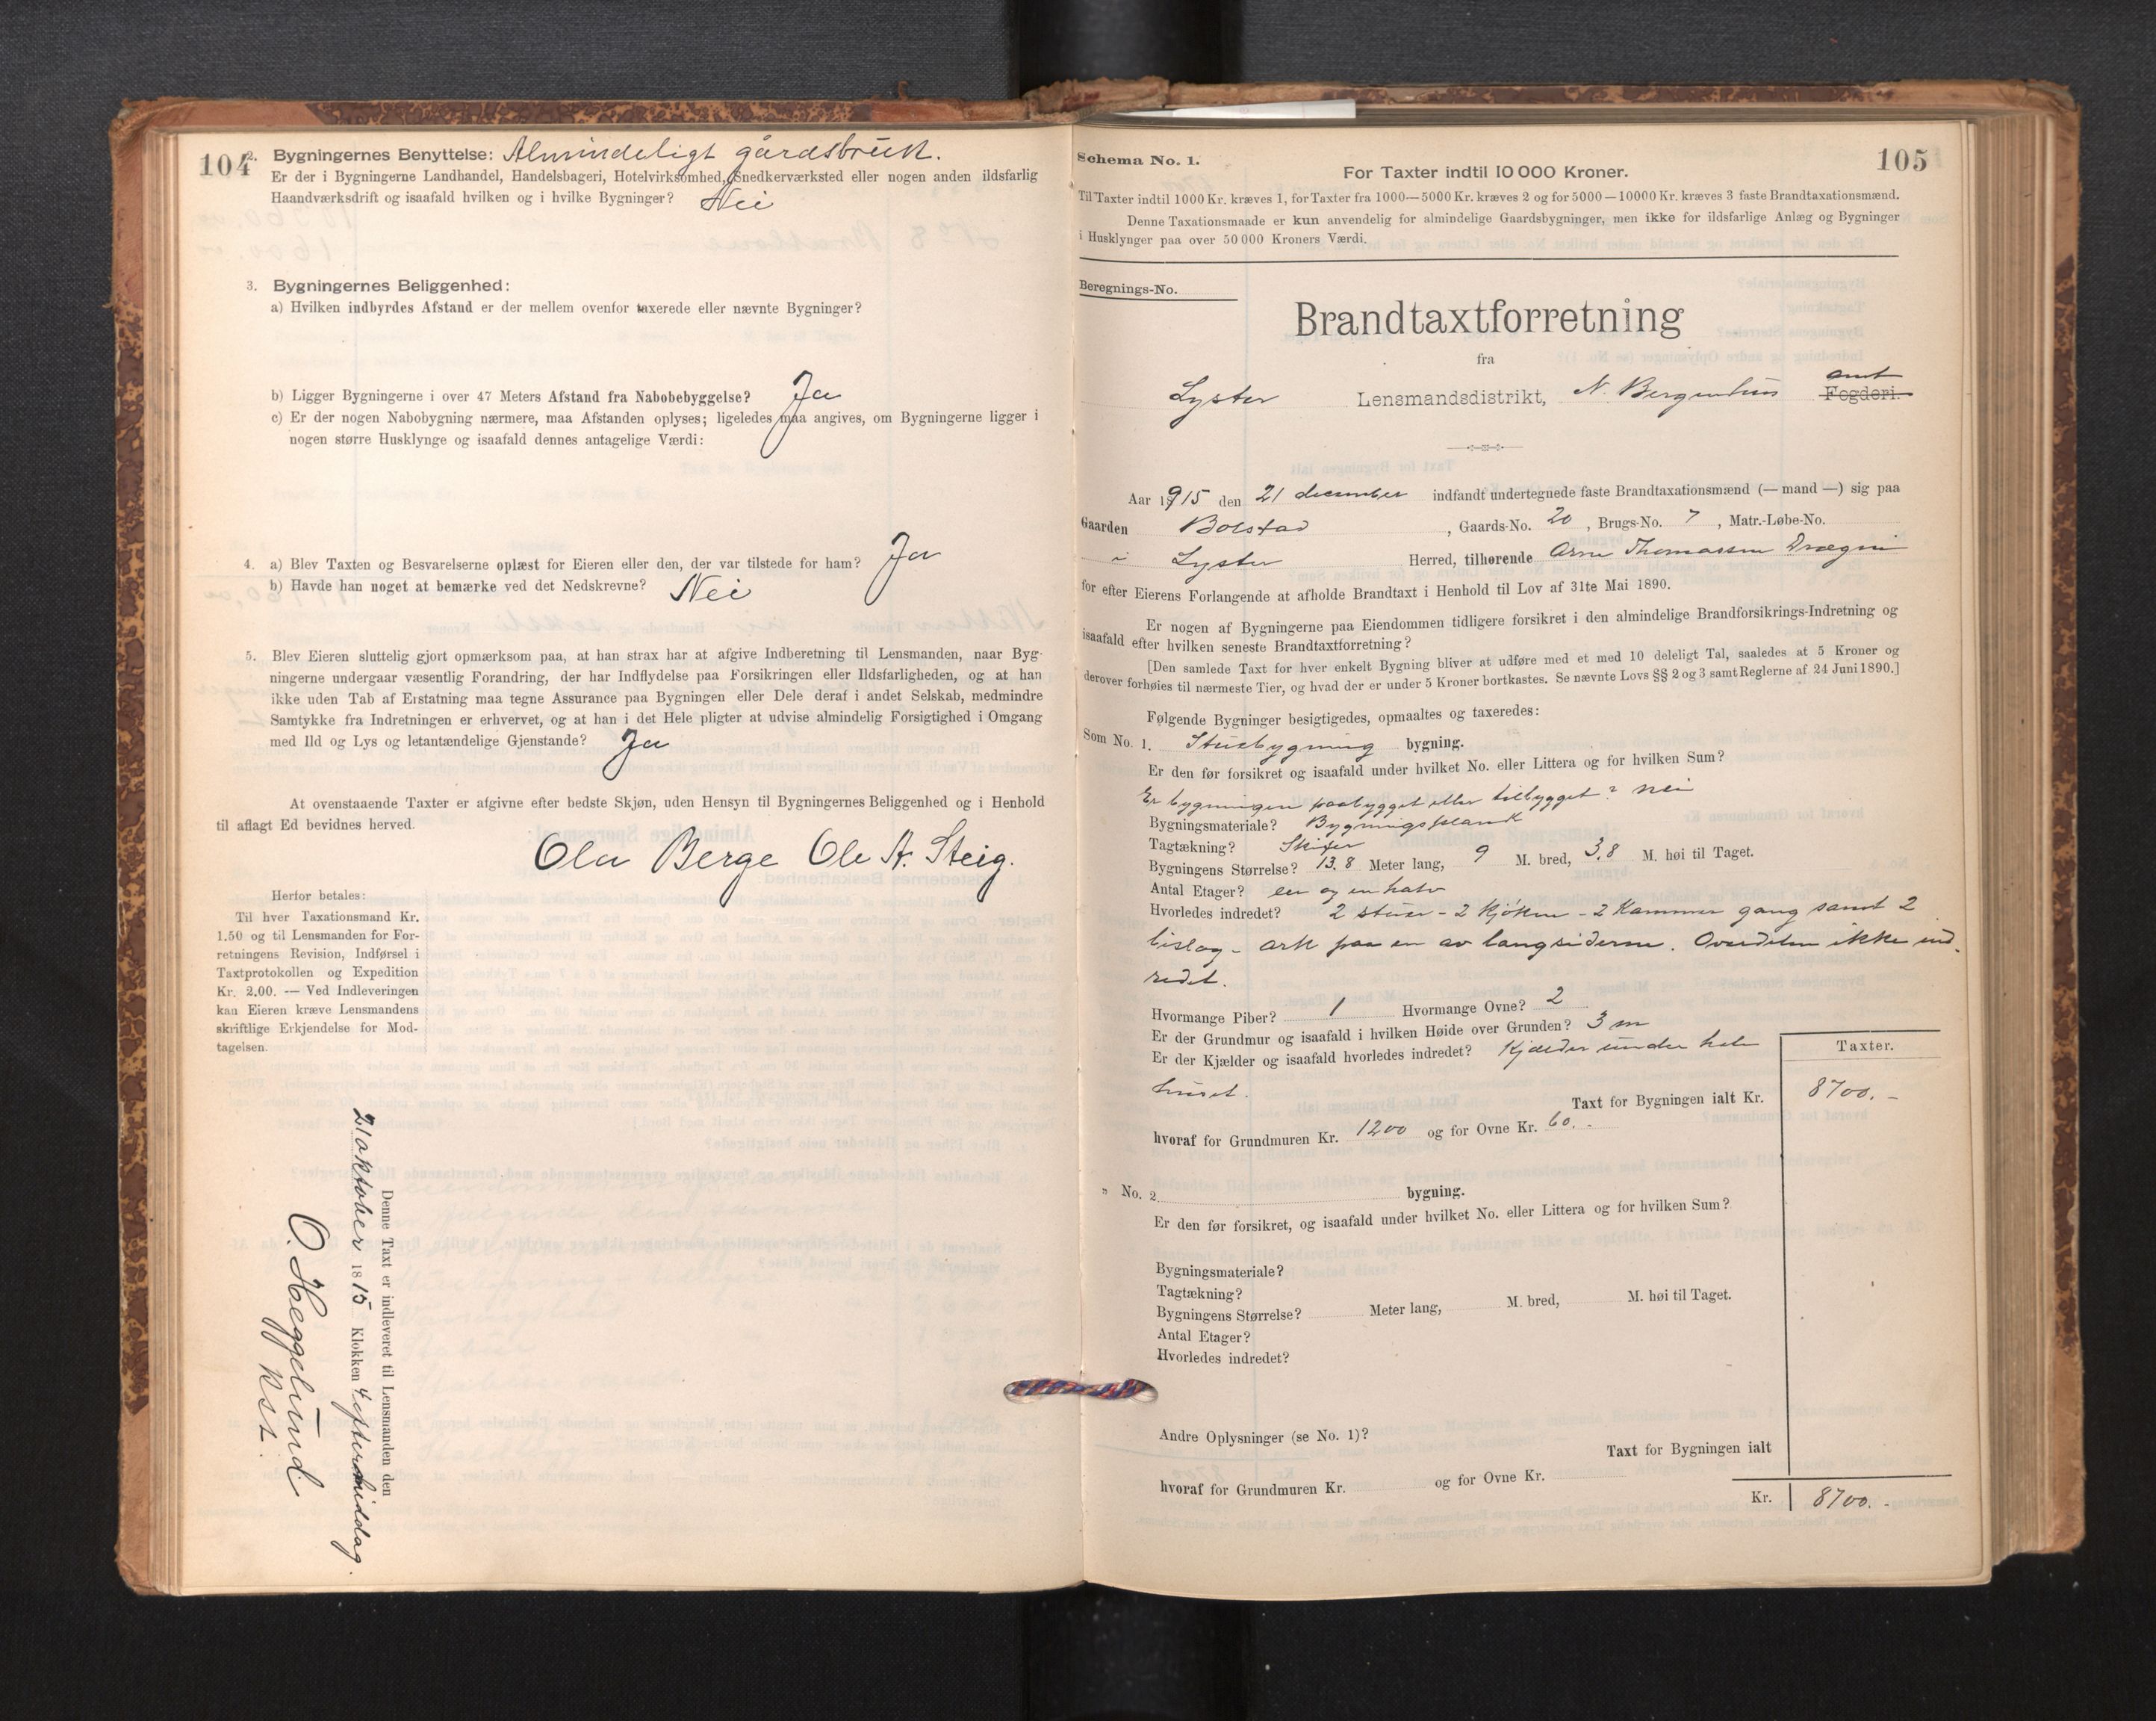 104
2. Bygningernes Benyttelse: Almindeligt gårdsbruk.
Er der i Bygningerne Landhandel, Handelsbageri, Hotelvirksomhed, Snedkerværksted eller nogen anden ildsfarlig
Haandværksdrift og isaafald hvilken og i hvilke Bygninger? Nei
3. Bygningernes Beliggenhed:
a) Hvilken indbyrdes Afstand er der mellem ovenfor taxerede eller nævnte Bygninger?
b) Ligger Bygningerne i over 47 Meters Afstand fra Nabobebyggelse? Ja
c) Er der nogen Nabobygning nærmere, maa Afstanden oplyses; ligeledes maa angives, om Bygningerne ligger i
nogen større Husklynge og isaafald dennes antagelige Værdi:
4. a) Blev Taxten og Besvarelserne oplæst for Eieren eller den, der var tilstede for ham? Ja
b) Havde han noget at bemærke ved det Nedskrevne? Nei
5. Blev Eieren sluttelig gjort opmærksom paa, at han strax har at afgive Indberetning til Lensmanden, naar Byg-
ningerne undergaar væsentlig Forandring, der har Indflydelse paa Forsikringen eller Ildsfarligheden, og at han
ikke uden Tab af Erstatning maa tegne Assurance paa Bygningen eller Dele deraf i andet Selskab, medmindre
Samtykke fra Indretningen er erhvervet, og at han i det Hele pligter at udvise almindelig Forsigtighed i Omgang
med Ild og Lys og letantændelige Gjenstande? Ja
At ovenstaaende Taxter er afgivne efter bedste Skjøn, uden Hensyn til Bygningernes Beliggenhed og i Henhold
til aflagt Ed bevidnes herved.
Ola Berge Ole A. Steig.
Herfor betales:
Til hver Taxationsmand Kr.
1.50 og til Lensmanden for For-
retningens Revision, Indførsel i
Taxtprotokollen og Expedition
Kr. 2.00. — Ved Indleveringen
kan Eieren kræve Lensmandens
skriftlige Erkjendelse for Mod-
tagelsen.
Denne Taxt er indleveret til Lensmanden den
21 oktober 1815 Klokken 4 eftermiddag.
O. Hæggelund
Schema No. 1.
105
For Taxter indtil 10 000 Kroner.
Til Taxter indtil 1000 Kr. kræves 1, for Taxter fra 1000—5000 Kr. kræves 2 og for 5000—10000 Kr. kræves 3 faste Brandtaxationsmænd.
Denne Taxationsmaade er kun anvendelig for almindelige Gaardsbygninger, men ikke for ildsfarlige Anlæg og Bygninger
i Husklynger paa over 50 000 Kroners Værdi.
Beregnings-No.
Brandtaxtforretning
fra
Lyster Lensmandsdistrikt, N. Bergenhus amt Fogderi.
Aar 1915 den 21 december indfandt undertegnede faste Brandtaxationsmænd (— mand —) sig paa
Gaarden Bolstad, Gaards-No. 20, Brugs-No. 7, Matr.-Løbe-No.
i Lyster Herred, tilhørende Arne Thomassen Drægni
for efter Eierens Forlangende at afholde Brandtaxt i Henhold til Lov af 31te Mai 1890.
Er nogen af Bygningerne paa Eiendommen tidligere forsikret i den almindelige Brandforsikrings-Indretning og
isaafald efter hvilken seneste Brandtaxtforretning?
[Den samlede Taxt for hver enkelt Bygning bliver at udføre med et med 10 deleligt Tal, saaledes at 5 Kroner og
derover forhøies til nærmeste Tier, og hvad der er under 5 Kroner bortkastes. Se nævnte Lovs §§ 2 og 3 samt Reglerne af 24 Juni 1890.]
Følgende Bygninger besigtigedes, opmaaltes og taxeredes:
Som No. 1. Stuebygning bygning.
Er den før forsikret og isaafald under hvilket No. eller Littera og for hvilken Sum?
Er bygningen paabygget eller tilbygget? nei
Bygningsmateriale? Bygningsplank
Tagtækning? Skifer
Bygningens Størrelse? 13,8 Meter lang, 9 M. bred, 3,8 M. høi til Taget.
Antal Etager? en og en halv
Hvorledes indredet? 2 stuer - 2 kjøken - 2 kammer gang samt 2
bislag - ark paa en av langsiderne. Overdelen ikke ind-
redet.
Hvormange Piber? 1 Hvormange Ovne? 2
Er der Grundmur og isaafald i hvilken Høide over Grunden? 3 m
Er der Kjælder og isaafald hvorledes indredet? Kjælder under hele
huset.
Taxter.
Taxt for Bygningen ialt Kr. 8700.-
hvoraf for Grundmuren Kr. 1200 og for Ovne Kr. 60.-
" No. 2 bygning.
Er den før forsikret, og isaafald under hvilket No. eller Littera og for hvilken Sum?
Bygningsmateriale?
Tagtækning?
Bygningens Størrelse? Meter lang, M. bred, M. høi til Taget.
Antal Etager?
Hvorledes indredet?
Andre Oplysninger (se No. 1)?
Taxt for Bygningen ialt
hvoraf for Grundmuren Kr. og for Ovne Kr.
Kr. 8700.-